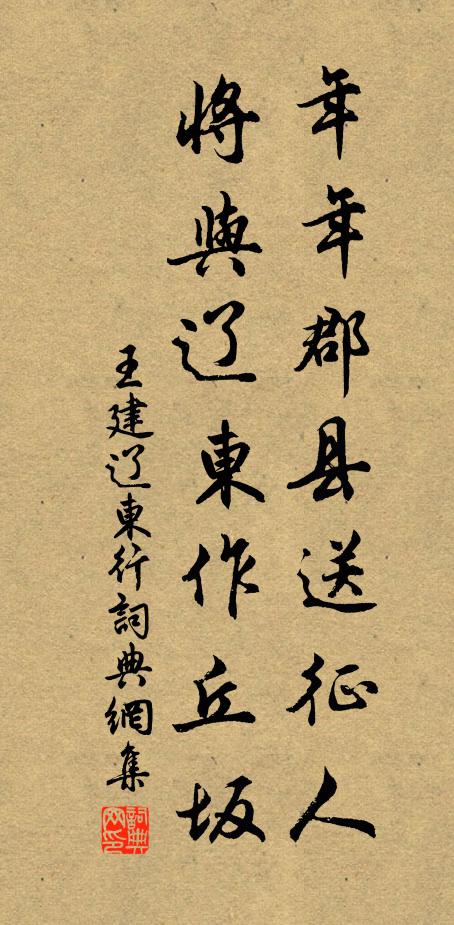 年年郡县送征人
將與辽東作丘坂
王建辽東行詞典網集
詞典网印